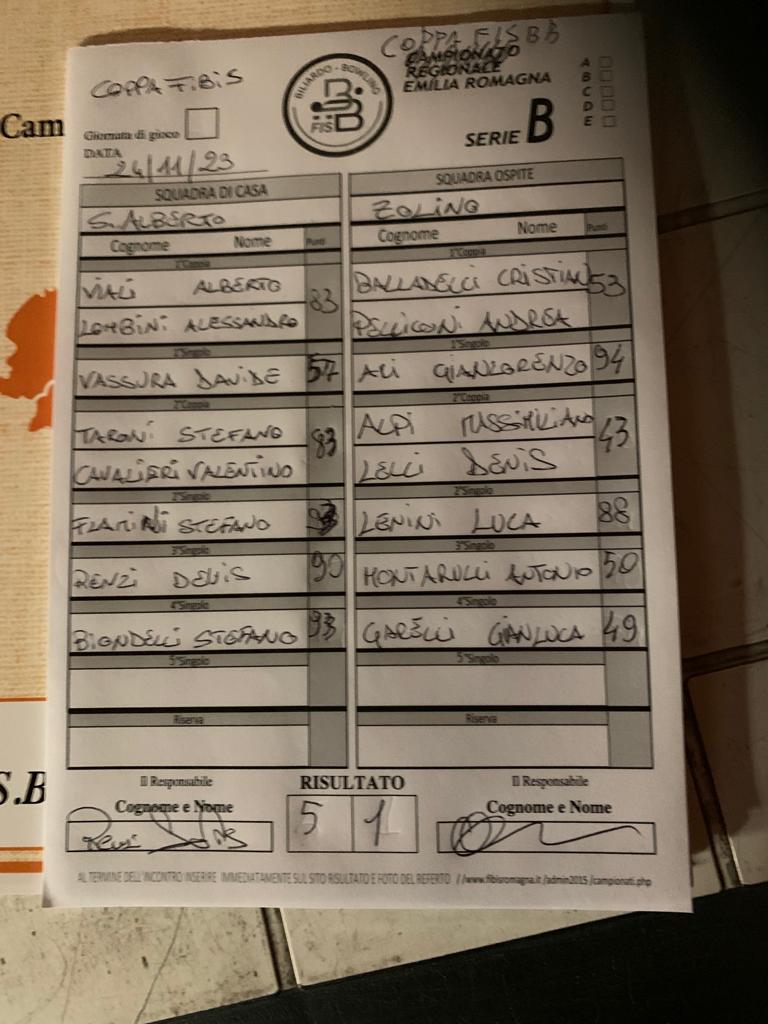 COPPA FISBB
COPPA FIBIS
CAMPIONATO
REGIONALE
EMILIA ROMAGNA
SERIE B
A
B
C
D
E
BILIARDO - BOWLING
FISBB
Giornata di gioco
DATA
24/11/23
SQUADRA DI CASA
S. ALBERTO
Cognome Nome Punti
1°Coppia
VIALI ALBERTO 83
LOMBINI ALESSANDRO
1°Singolo
VASSURA DAVIDE 57
2°Coppia
TARONI STEFANO 83
CAVALIERI VALENTINO
2°Singolo
FLAMINI STEFANO
3°Singolo
RENZI DENIS 90
4°Singolo
BIONDELLI STEFANO 93
5°Singolo
Riserva
SQUADRA OSPITE
ZOLINO
Cognome Nome Punti
1°Coppia
BALLADELLI CRISTIAN 53
PELLICONI ANDREA
1°Singolo
ALI GIANLORENZO 94
2°Coppia
ALPI MASSIMILIANO 43
LELLI DENIS
2°Singolo
LENINI LUCA 88
3°Singolo
MONTARULLI ANTONIO 50
4°Singolo
GARELLI GIANLUCA 49
5°Singolo
Riserva
Il Responsabile
Cognome e Nome
RISULTATO
5 1
Il Responsabile
Cognome e Nome
AL TERMINE DELL'INCONTRO INSERIRE IMMEDIATAMENTE SUL SITO RISULTATO E FOTO DEL REFERTO //www.fibisromagna.it/admin2015/campionati.php
Cam
S.B